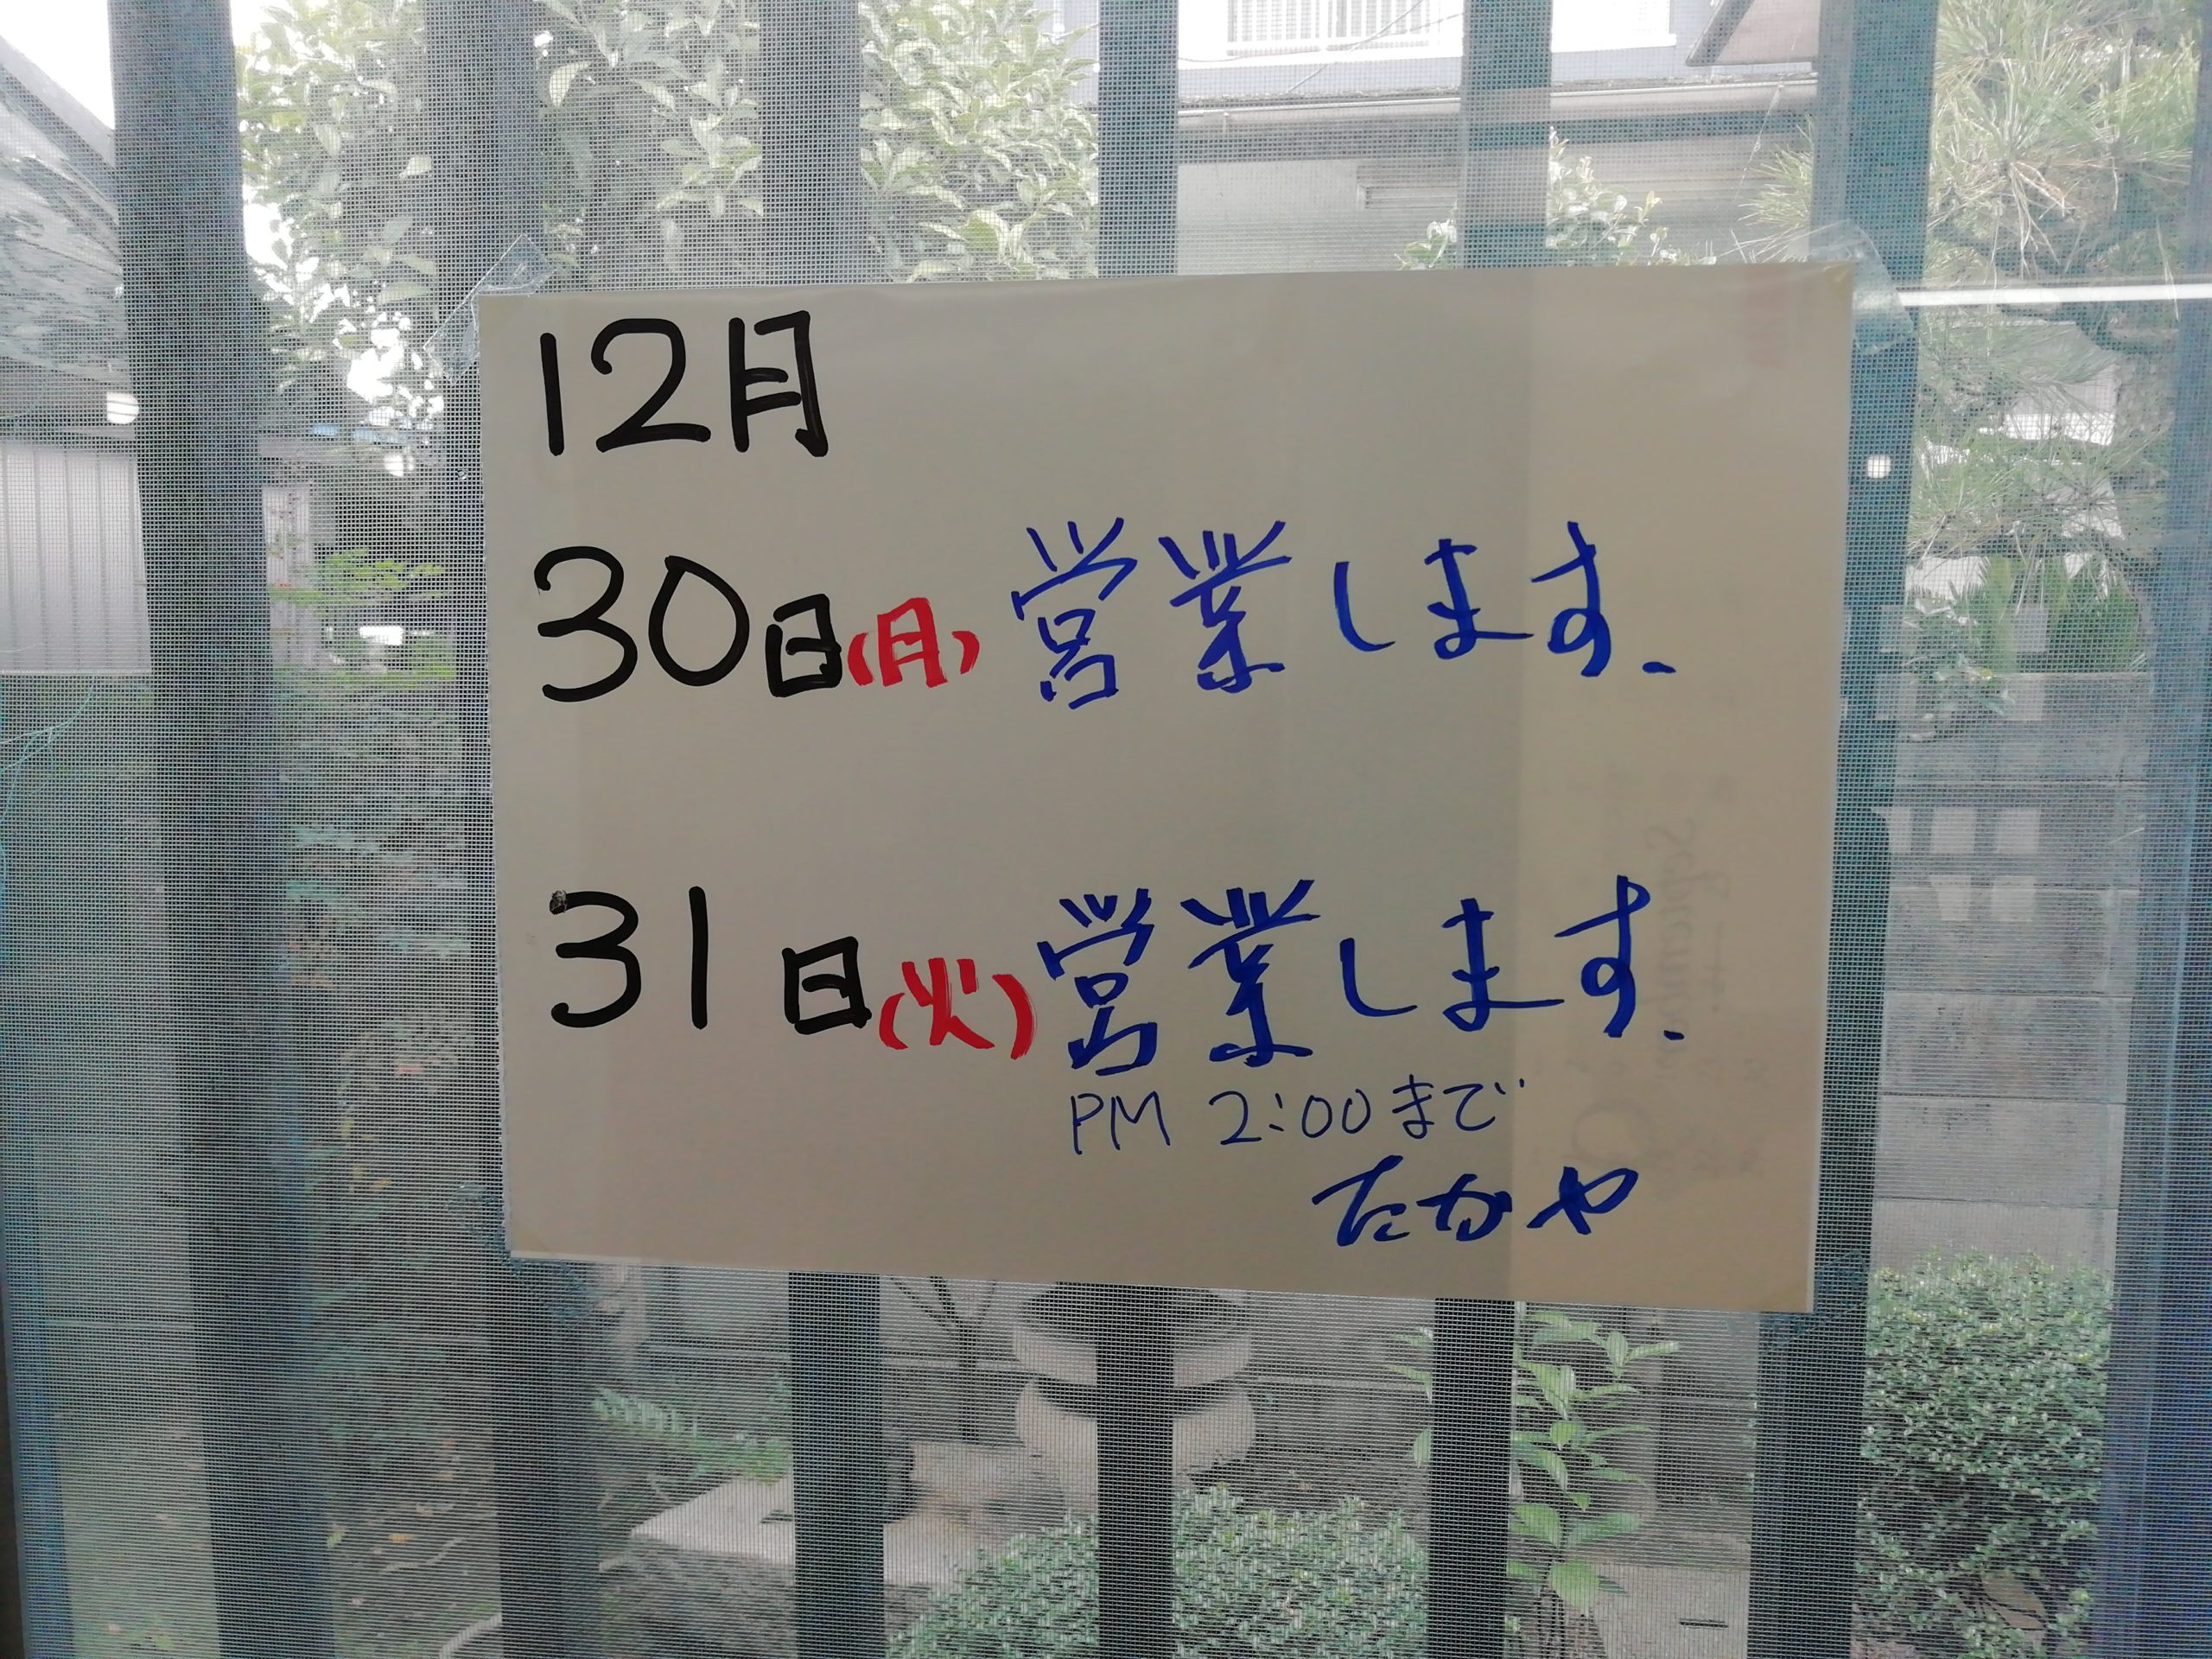 12月
30日(月) 営業します.
31日(火) 営業します.
PM 2:00まで
たかや